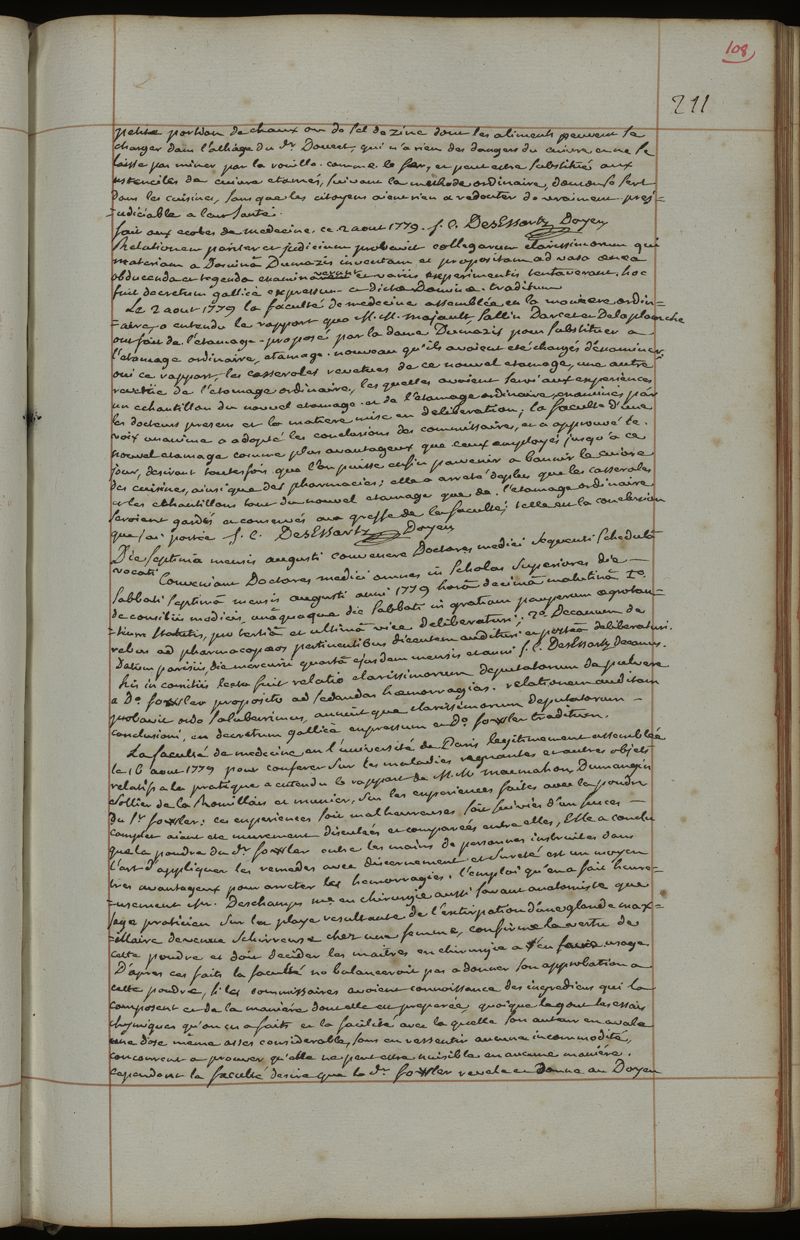 108
211
petite portion de chaux ou de sel de zinc dont les aliments peuvent se
charger dans l'alliage du Sr. Doucet, qui n'a rien des dangers du cuivre et ne se
laisse pas miner par la rouille. comme le fer, et peut etre substitué aux
ustenciles de cuivre etamés, suivant la methode ordinaire, dont on se sert
dans les cuisines, sans que les citoyens aient rien a redouter de vraiment pre=
=judiciable a leur santé.
fait aux ecoles de medecine, ce 2 aout 1779. J. C. DesEssartz Doyen
Relationem pariter et judicium probavit collegarum clarissimorum qui
materiam a Dominâ Dumazis inventam et propositam ad vasa aenea
obducenda et tegenda examinaverunt et variis experimentis tentaverant. hoc
fuit decretum gallicè expressum et dictae Dominae traditum
Le 2 aout 1779 la faculté de medecine assemblée en la maniere ordin=
=aire, a entendu le rapport que M. M. Majault, Sallin Darcet et Delaplanche
ont fait de l'etamage proposé par la dame Dumazis pour substituer a
l'etamage ordinaire, etamage nouveau qu'ils avoient eté chargés d'examiner,
oui ce rapport, les casseroles revetues de ce nouvel etamage, une autre
revetüe de l'etamage ordinaire, les quelles avoient servi aux experiences
un echantillon du nouvel etamage et de l'etamage ordinaire examinés par
les docteurs presens et la matiere mise en deliberation; la faculté d'une
voix unanime a adopté les conclusions des commissaires, et a approuvé le
nouvel etamage comme plus avantageux que ceux employés jusqu'a ce
jour, desirant toutesfois que l'on puisse enfin parvenir a bannir le cuivre
des cuisines, ainsi que des pharmacies; elle a arreté de plus que les casseroles
et les echantillons tant du nouvel etamage que de l'etamage ordinaire
seroient gardés et conservés au greffe de la faculté; telle est la conclusion
que j'ai portée J. C. DesEssartz Doyen
Die septimâ mensis augusti convenere Doctores medici sequenti schedulâ
vocati Conveniant Doctores medici omnes in Scholas Superiores die
Sabbati septimâ mensis augusti anni 1779 horâ decimâ matutinâ 1o.
de consiliis medicis, unâquaque die Sabbati in gratiam pauperum aegrotan=
=tium statutis, pro tertiâ et ultimâ vice deliberaturi; 2o. Decanum de
rebus ad pharmacopaeos pertinentibus dicentem audituri et posteà deliberaturi.
Datum parisiis, die mercurii quartâ ejusdem mensis et anni J. C. DesEssartz Decanus.
his in comitiis lecta fuit relatio clarissimorum deputatorum de pulvere
a Do. foxler proposito ad sedandas haemorragias. relationem auditam
probavit ordo saluberrimus, annuit que clarissimorum deputatorum
conclusioni, en decretum gallicè expressum et Do. foxler traditum.
La faculté de medecine en l'université de Paris legitimement assemblée
le 16 aout 1779 pour conferer sur les maladies regnantes et autres objets
relatifs a la pratique a entendu le rapport de M. M. macmahon, Dumangin
Sollier de la Romillais et munier, sur les experiences faites avec la poudre
du Sr. foxler; ces experiences soit malheureuses soit suivies d'un succes
complet aiant eté murement discutées et comparées entre elles, Elle a conclu
que la poudre du Sr. foxler entre les mains de personnes instruites dans
l'art d'appliquer les remedes avec discernement et sureté est un moyen
tres avantageux pour arreter les hemorragies. l'emploi qu'en a fait heure=
=usement Mr. Deschamps me. en chirurgie aussi savant anatomiste que
sage praticien sur la playe resultante de l'extirpation d'une glande max=
=illaire devenue schirreuse chez une femme, confirme la vertu de
cette poudre et doit decider les maitres en chirurgie a en faire usage.
D'apres ces faits la faculté ne balanceroit pas a donner son approbation a
cette poudre, si les commissaires avoient connoissance des ingrediens qui la
composent et de la maniere dont elle est preparée, quoique le gout les essais
chymiques qu'on en a faits et la facilité avec la quelle son auteur en avale
une dose meme asses considerable, sans en ressentir aucune incommodité,
concourent a prouver qu'elle ne peut etre nuisible en aucune maniere.
cependant la faculté desire que le Sr. foxler revele et donne au Doyen